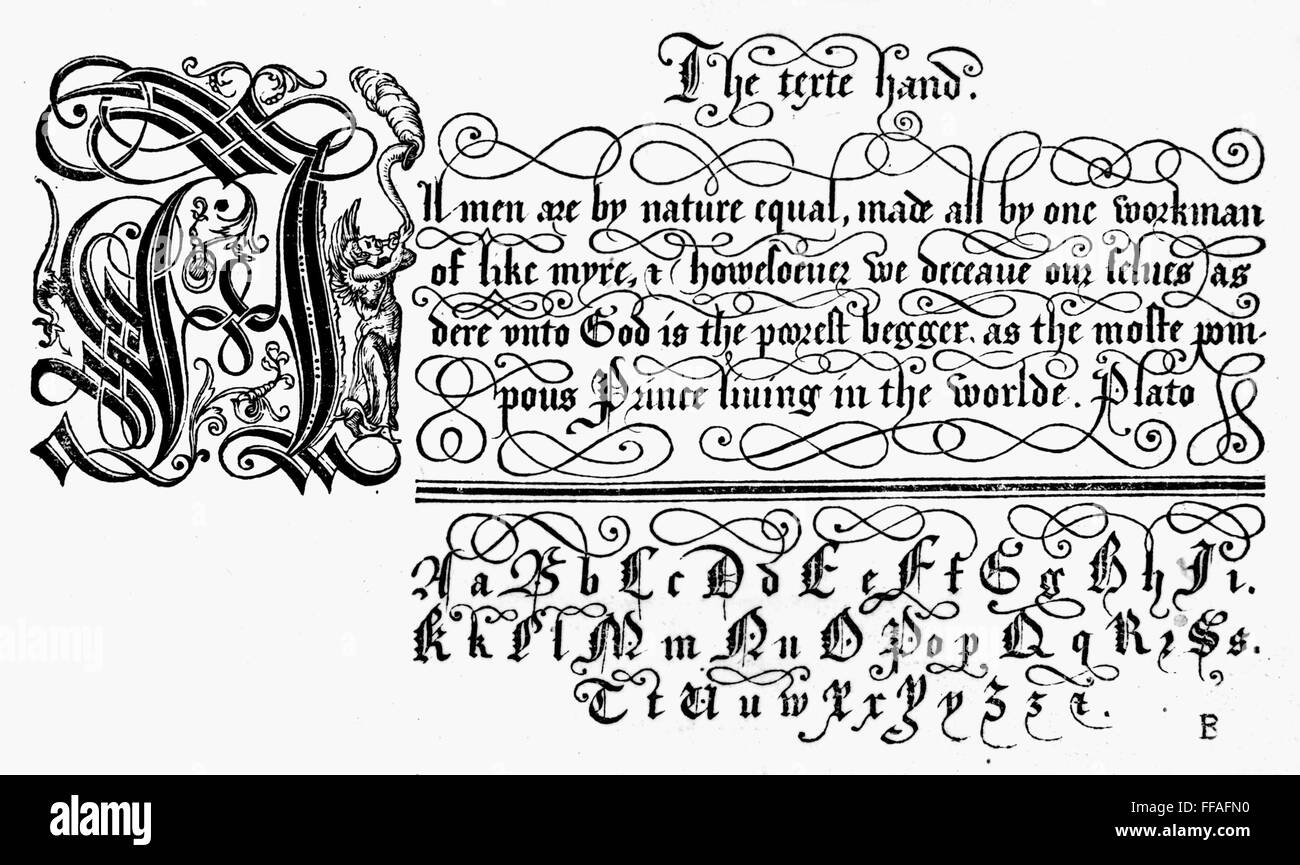 The texte hand.
All men are by nature equal, made all by one workman
of like myre, & howesoeuer we deceaue our selues as
dere vnto God is the poorest begger. as the moste pom-
pous Prince liuing in the worlde. Plato
A a B b C c D d E e F f G g H h I i.
K k L l M m N n O P o p Q q R r S s.
T t U u w X x Y y Z z &.
B
alamy
Image ID: FFAFN0
www.alamy.com